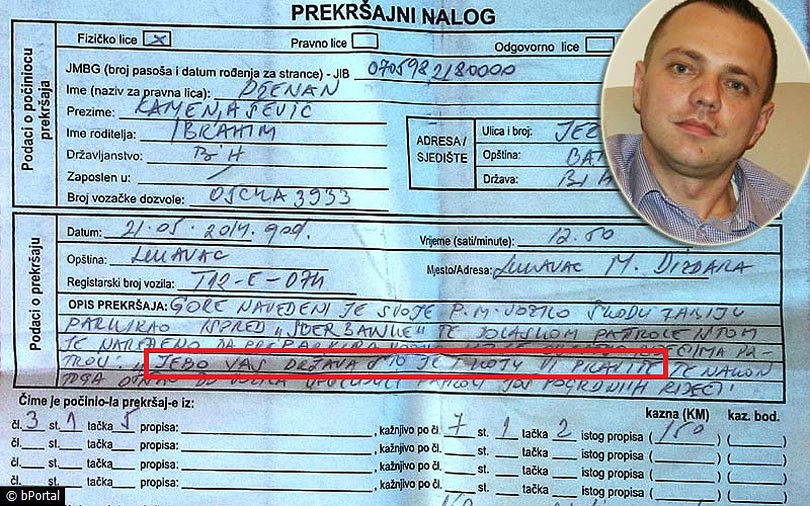 PREKRŠAJNI NALOG
Podaci o počiniocu prekršaja
Fizičko lice X Pravno lice Odgovorno lice
JMBG (broj pasoša i datum rođenja za strance) - JIB 070598218
Ime (naziv za pravna lica): DŽENAN
Prezime: KAMENJAŠEVIĆ
Ime roditelja: IBRAHIM
Državljanstvo: BiH
Zaposlen u:
Broj vozačke dozvole: 3933
ADRESA / SJEDIŠTE
Ulica i broj: JEZ
Opština: BA
Država: BI H
Podaci o prekršaju
Datum: 21.05.2014. god. Vrijeme (sati/minute): 12.50
Opština: LUKAVAC Mjesto/Adresa: LUKAVAC M. DIZDARA
Registarski broj vozila: T12-E-074
OPIS PREKRŠAJA: GORE NAVEDENI JE SVOJE P.M. VOZILO ŠKODU FABIJU
PARKIRAO ISPRED „SBERBANKE" TE DOLASKOM PATROLE ISTOM
JE NAREĐENO DA PREPARKIRA RIJEČIMA PA-
TROLI: „JEBO VAS DRŽAVA ŠTO JE VI PRAVITE TE NAKON
TOGA PATROLI JOŠ POGRDNIH RIJEČI!
Čime je počinio-la prekršaj-e iz: kazna (KM) kaz. bod.
čl. 3 st. 1 tačka 5 propisa: , kažnjivo po čl. 7 st. 1 tačka 2 istog propisa ( 150 ) ( )
čl. st. tačka propisa: , kažnjivo po čl. st. tačka istog propisa ( ) ( )
čl. st. tačka propisa: , kažnjivo po čl. st. tačka istog propisa ( ) ( )
čl. st. tačka propisa: , kažnjivo po čl. st. tačka istog propisa ( ) ( )
© bPortal